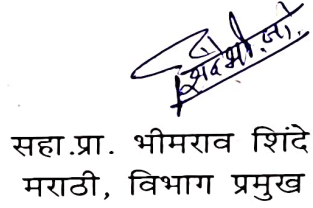 सहा.प्रा. भीमराव शिंदे
मराठी, विभाग प्रमुख